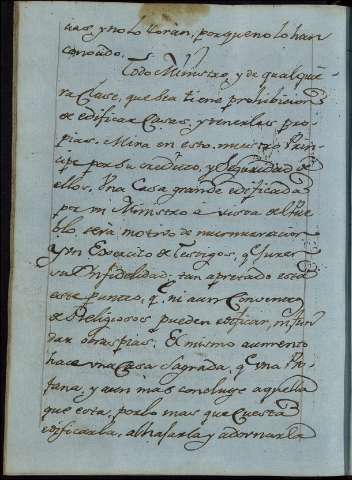 cias y no lo lloran, porque no lo han
conocido.
Todo Ministro, y de qualquie-
ra Clase, que sea tiene prohibicion
de edificar Casas, y tenerlas pro
pias. Mira en esto nuestro Prin-
cipe por su credito, y Seguridad de
ellos. Una Casa grande edificada
por un Ministro à vista del Pue
blo, sera motivo de murmuracion
y un Exercito de Testigos, q.e juren
su Infidelidad; tan apretado está
este punto, q.e ni aun Conventos
de Religiosos pueden edificar, ni fun
dar obras pias: El mismo aumento
hace una Casa Sagrada, q.e una Pro-
fana, y aun mas concluye aquella
que esta, por lo mas que Cuesta
edificarla, alhajarla y adornarla